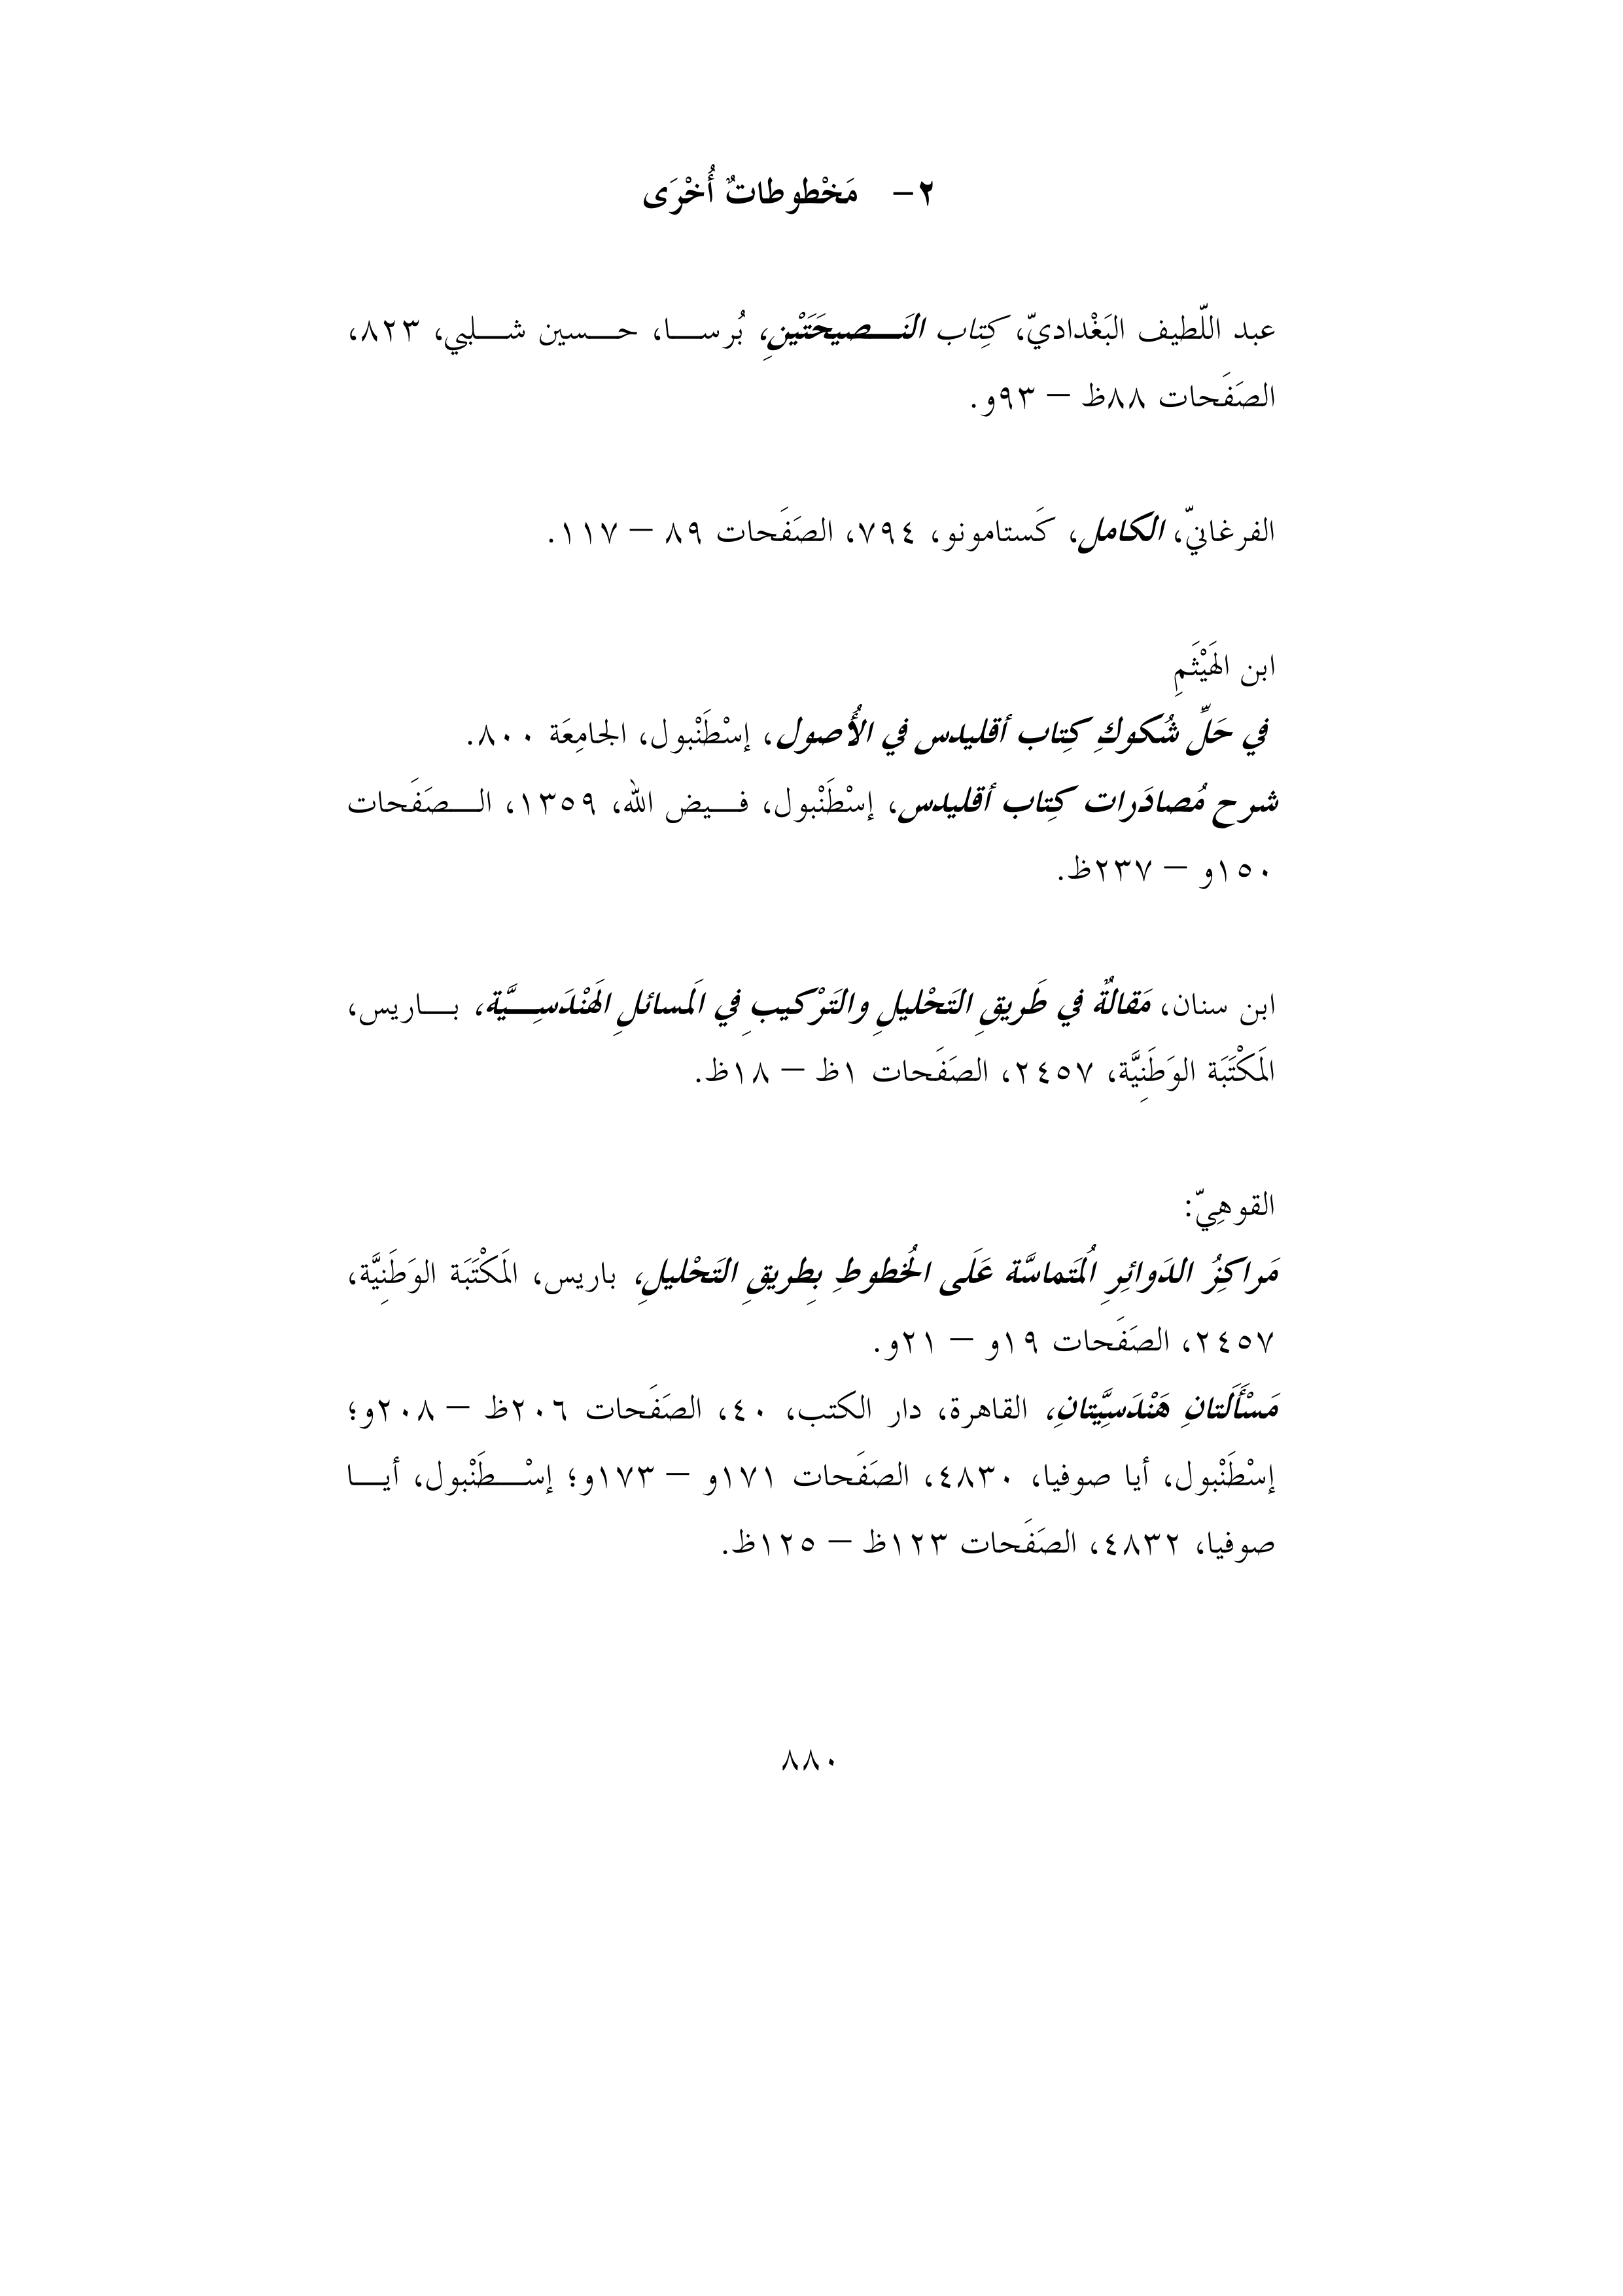 ٢- مَخْطوطاتٌ أُخْرَى
عبد اللّطيف البَغْداديّ، كِتاب النَـصيحَتَيْنِ، بُرسـا، حـسين شـلبي، ٨٢٣،
الصَفَحات ٨٨ظ – ٩٣و.
الفرغانيّ، الكامل، كَستامونو، ٧٩٤، الصَفَحات ٨٩ – ١١٧.
ابن الهَيْثَمِ
في حَلِّ شُكوكِ كِتاب أقليدس في الأُصول، إسْطَنْبول، الجامِعَة ٨٠٠.
شرح مُصادَرات كِتاب أقليدس، إسْطَنْبول، فـيض الله، ١٣٥٩، الـصَفَحات
١٥٠و – ٢٣٧ظ.
ابن سنان، مَقالَةٌ في طَريقِ التَحْليلِ والتَرْكيبِ في المَسائلِ الهَنْدَسِـيَّة، بـاريس،
المَكْتَبَة الوَطَنِيَّة، ٢٤٥٧، الصَفَحات ١ظ – ١٨ظ.
القوهِيّ:
مَراكزُ الدَوائِرِ المُتَماسَّة عَلَى الخُطوطِ بِطريقِ التَحْليلِ، باريس، المَكْتَبَة الوَطَنِيَّة،
٢٤٥٧، الصَفَحات ١٩و – ٢١و.
مَسْأَلَتانِ هَنْدَسِيَّتانِ، القاهرة، دار الكتب، ٤٠، الصَفَحات ٢٠٦ظ – ٢٠٨و؛
إسْطَنْبول، أيا صوفيا، ٤٨٣٠، الصَفَحات ١٧١و – ١٧٣و؛ إسْـطَنْبول، أيـا
صوفيا، ٤٨٣٢، الصَفَحات ١٢٣ظ – ١٢٥ظ.
٨٨٠